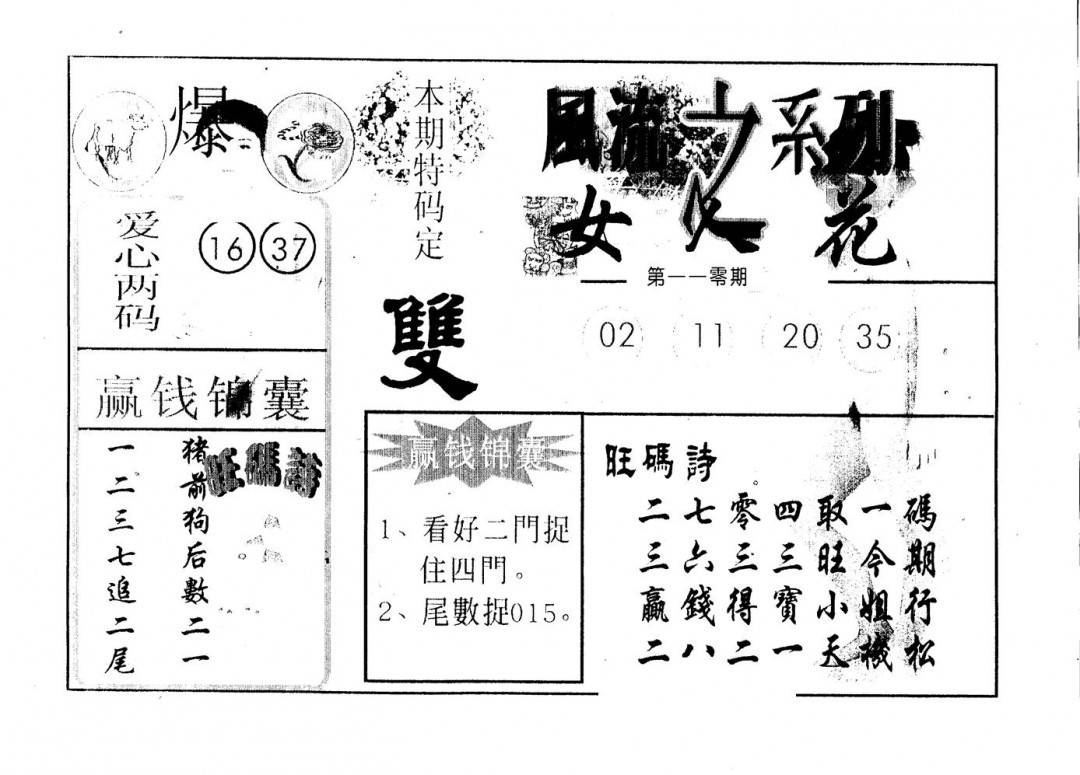 爆
本期特码定
雙
爱心两码
16 37
赢钱锦囊
旺碼詩
猪前狗后數二一
一二三七追二尾
赢钱锦囊
1、看好二門捉
住四門。
2、尾數捉015。
風流之系列
女人花
第一一零期
02 11 20 35
旺碼詩
二七零四取一碼
三六三三旺今期
贏錢得寶小姐行
二八二一天機松